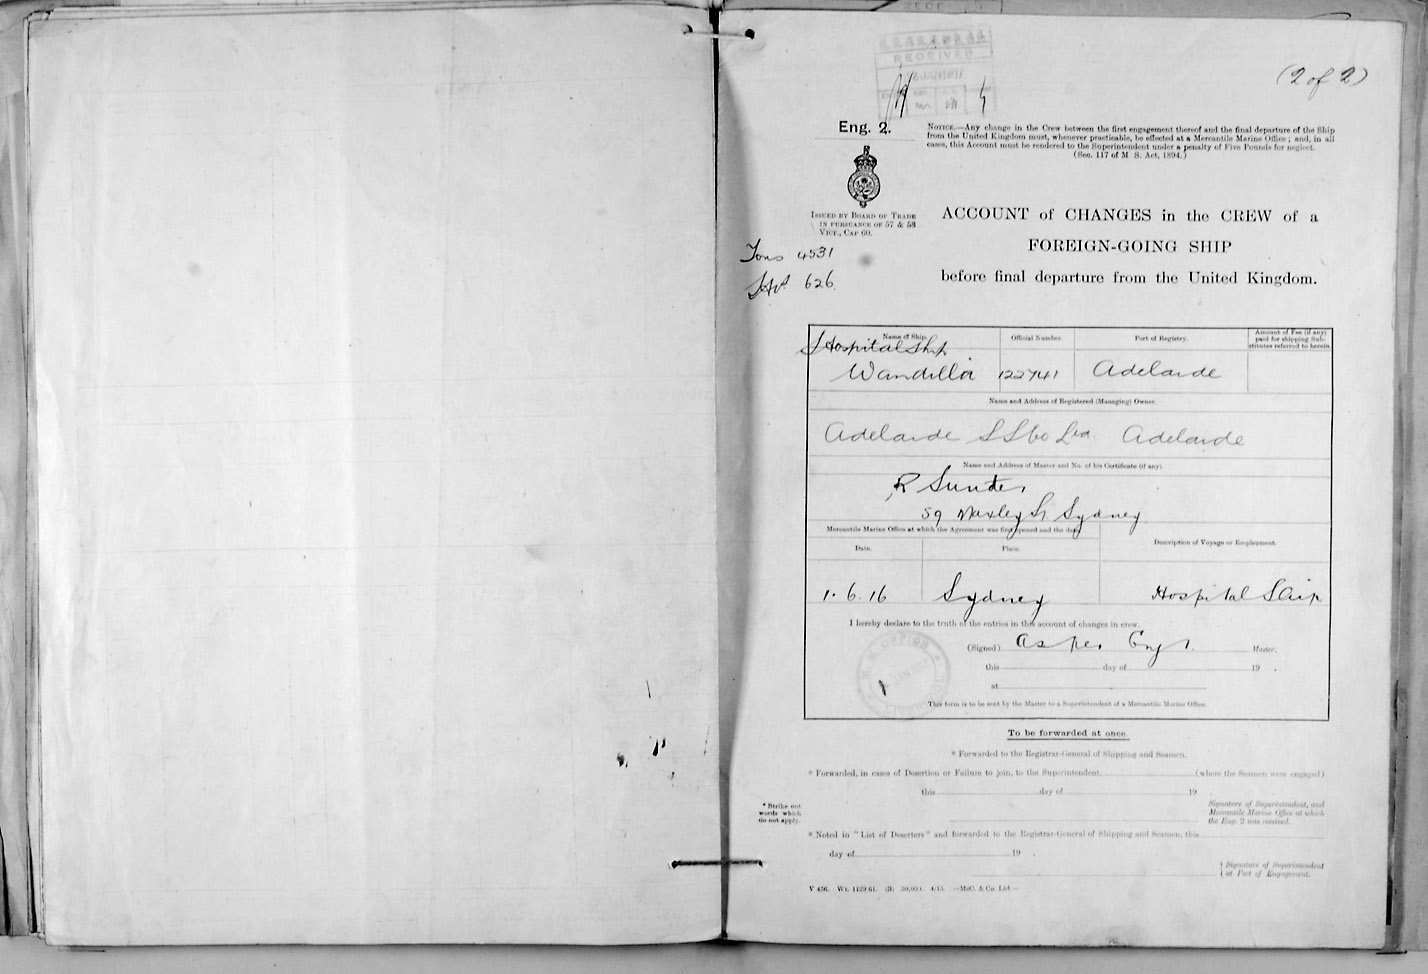 RECEIVED
(2 of 2)
Eng. 2.
NOTICE.—Any change in the Crew between the first engagement thereof and the final departure of the Ship
from the United Kingdom must, whenever practicable, be effected at a Mercantile Marine Office; and, in all
cases, this Account must be rendered to the Superintendent under a penalty of Five Pounds for neglect.
(Sec. 117 of M. S. Act, 1894.)
ISSUED BY BOARD OF TRADE
IN PURSUANCE OF 57 & 58
VICT., CAP 60.
ACCOUNT of CHANGES in the CREW of a
FOREIGN-GOING SHIP
before final departure from the United Kingdom.
Tons 4531
626
Name of Ship. Official Number. Port of Registry. Amount of Fee (if any)
paid for shipping Sub-
stitutes referred to herein.
Hospital Ship
Wandilla 122741 Adelaide
Name and Address of Registered (Managing) Owner.
Adelaide S S Co Ltd. Adelaide
Name and Address of Master and No. of his Certificate (if any).
R Sunter
59 St Sydney
Mercantile Marine Office at which the Agreement was first opened and the date
Description of Voyage or Employment.
Date. Place.
1. 6. 16 Sydney Hospital Ship
I hereby declare to the truth of the entries in this account of changes in crew.
(Signed) as per Eng 1. Master.
this day of 19 .
at
This form is to be sent by the Master to a Superintendent of a Mercantile Marine Office.
To be forwarded at once.
* Forwarded to the Registrar-General of Shipping and Seamen.
* Forwarded, in cases of Desertion or Failure to join, to the Superintendent, (where the Seamen were engaged)
this day of 19 .
* Strike out
words which
do not apply.
Signature of Superintendent, and
Mercantile Marine Office at which
the Eng. 2 was received.
* Noted in "List of Deserters" and forwarded to the Registrar-General of Shipping and Seamen, this
day of 19 .
Signature of Superintendent
at Port of Engagement.
V 456. Wt. 4/15. —McC. & Co. Ltd.—